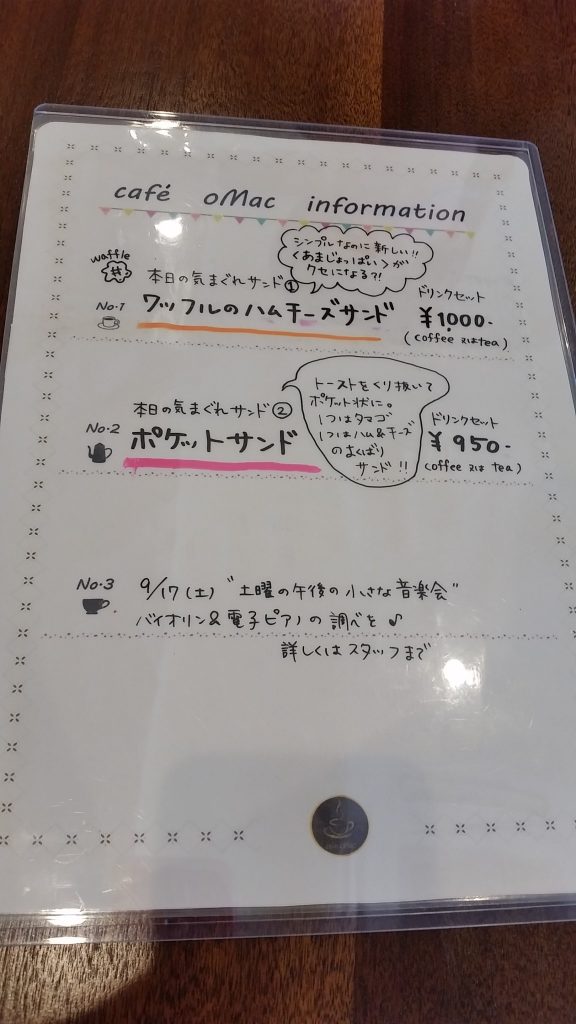 café oMac information
waffle
シンプルなのに新しい!!
〈あまじょっぱい〉が
クセになる?!
本日の気まぐれサンド①
No.1 ワッフルのハムチーズサンド
ドリンクセット
¥1000-
(coffee 又はtea)
本日の気まぐれサンド②
No.2 ポケットサンド
トーストをくり抜いて
ポケット状に。
1つはタマゴ
1つはハム&チーズ
のよくばり
サンド!!
ドリンクセット
¥950-
(coffee 又は tea)
No.3 9/17(土) "土曜の午後の小さな音楽会"
バイオリン&電子ピアノの調べを♪
詳しくはスタッフまで